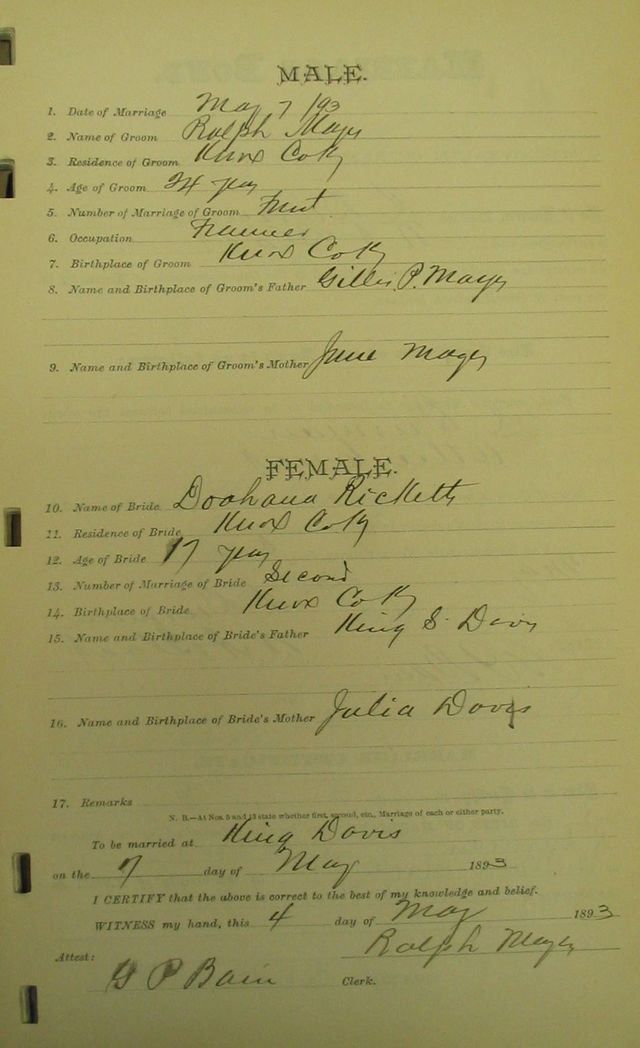 MALE.
1. Date of Marriage May 7 /93
2. Name of Groom Ralph Mays
3. Residence of Groom Knox Co Ky
4. Age of Groom 24 yrs
5. Number of Marriage of Groom First
6. Occupation Farmer
7. Birthplace of Groom Knox Co Ky
8. Name and Birthplace of Groom's Father P. Mays
9. Name and Birthplace of Groom's Mother Mays
FEMALE.
10. Name of Bride Ricketts
11. Residence of Bride Knox Co Ky
12. Age of Bride 17 yrs
13. Number of Marriage of Bride Second
14. Birthplace of Bride Knox Co Ky
15. Name and Birthplace of Bride's Father King S. Davis
16. Name and Birthplace of Bride's Mother Julia Davis
17. Remarks
N. B.—At Nos. 5 and 13 state whether first, second, etc., Marriage of each or either party.
To be married at King Davis
on the 7 day of May 1893
I CERTIFY that the above is correct to the best of my knowledge and belief.
WITNESS my hand, this 4 day of May 1893
Ralph Mays
Attest:
G P Bain Clerk.